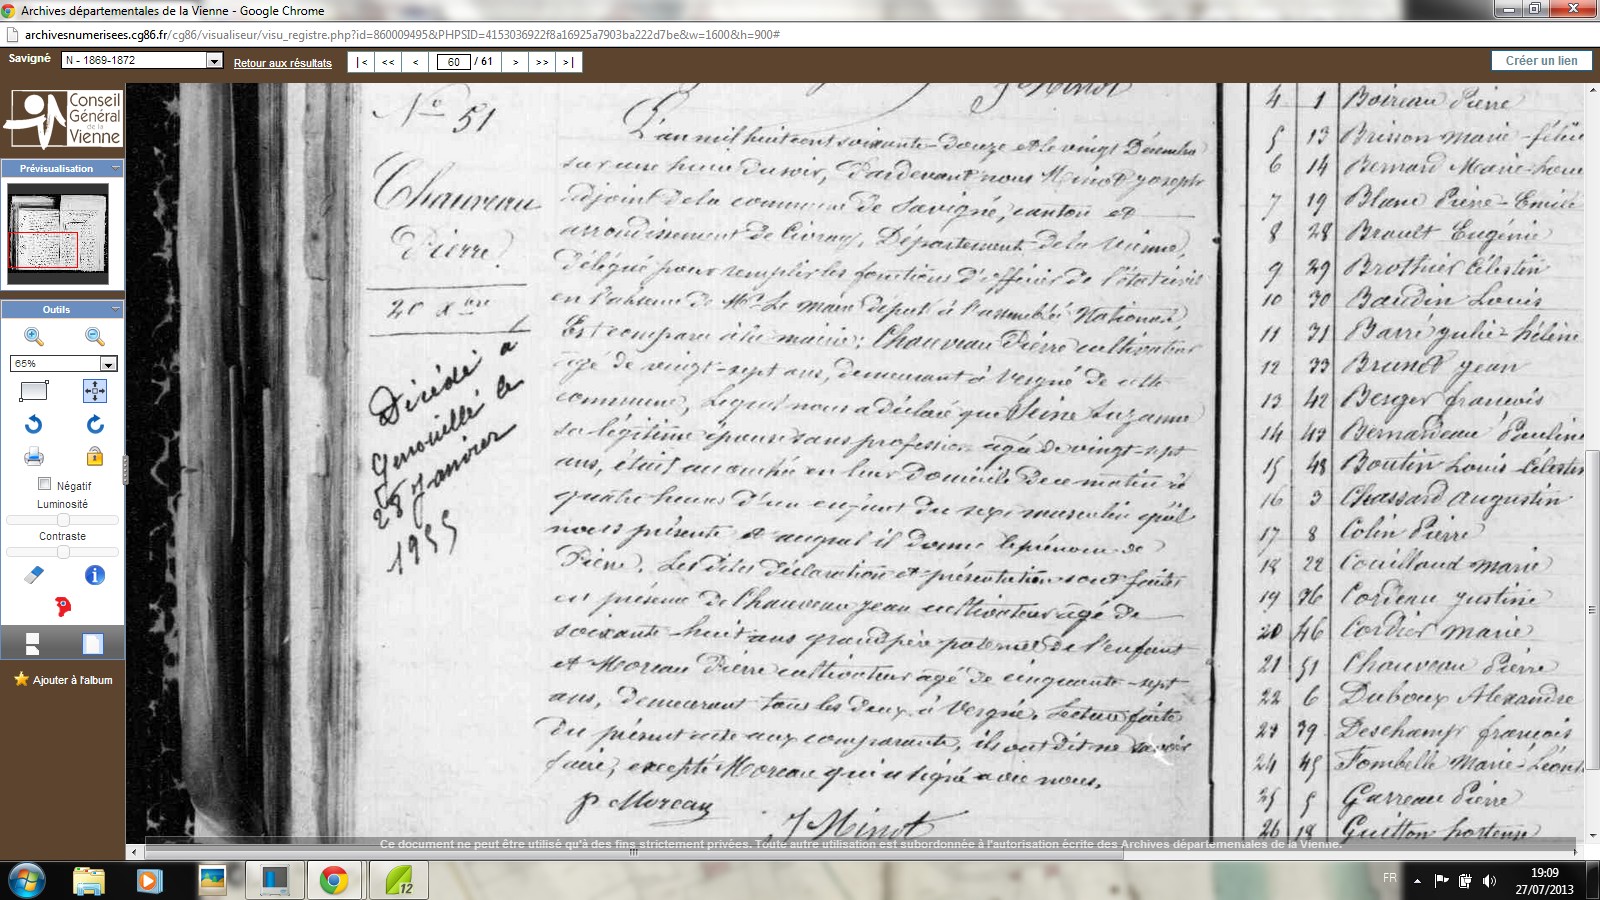 Archives départementales de la Vienne - Google Chrome
archivesnumerisees.cg86.fr/cg86/visualiseur/visu_registre.php?id=860009495&PHPSID=4153036922f8a16925a7903ba222d7be&w=1600&h=900#
Savigné
N - 1869-1872
Retour aux résultats
|<
<<
<
60 / 61
>
>>
>|
Créer un lien
Conseil
Général
de la
Vienne
Prévisualisation
Outils
65%
Négatif
Luminosité
Contraste
Ajouter à l'album
No 51
Chauveau
Pierre
20 xbre
Décédé à
Genouillé le
28 janvier
1955
J Minot
L'an mil huit cent soixante-douze et le vingt Décembre
sur une heure du soir, Pardevant nous Minot Joseph
adjoint de la commune de Savigné, canton et
arrondissement de Civray, Département de la Vienne,
délégué pour remplir les fonctions d'officier de l'état civil
en l'absence de Mr Le Maire député à l'assemblée Nationale,
Est comparu à la mairie: Chauveau Pierre cultivateur
âgé de vingt-sept ans, demeurant à Vergné de cette
commune, Lequel nous a déclaré que Seine Suzanne
sa légitime épouse sans profession agée de vingt-sept
ans, était accouchée en leur domicile de ce matin à
quatre heures d'un enfant du sexe masculin qu'il
nous présente et auquel il donne le prénom de
Pierre. Les dites déclaration et présentation sont faites
en présence de Chauveau Jean cultivateur agé de
soixante-huit ans grand père paternel de l'enfant
et Moreau Pierre cultivateur agé de cinquante-sept
ans, demeurant tous les deux à Vergné. Lecture faite
du présent acte aux comparants, ils ont dit ne savoir
faire, excepté Moreau qui a signé avec nous.
p Moreau
J Minot
4 1 Boireau Pierre
5 13 Brisson Marie-félic
6 14 Bernard Marie-Loui
7 19 Blanc Pierre-Emile
8 28 Brault Eugénie
9 29 Brothier Célestin
10 30 Baudin Louis
11 31 Barré Julie-hélène
12 33 Brunet Jean
13 42 Berger françois
14 43 Bernardeau Pauline
15 48 Boutin Louis-Célestin
16 3 Chassard Augustin
17 8 Colin Pierre
18 22 Couillaud marie
19 36 Cordeau Justine
20 46 Cordier marie
21 51 Chauveau Pierre
22 6 Duboux Alexandre
23 39 Deschamp françois
24 45 Fombelle Marie-Léon
25 5 Garreau Pierre
26 18 Guitton hortense
Ce document ne peut être utilisé qu'à des fins strictement privées. Toute autre utilisation est subordonnée à l'autorisation écrite des Archives départementales de la Vienne.
12
FR
19:09
27/07/2013